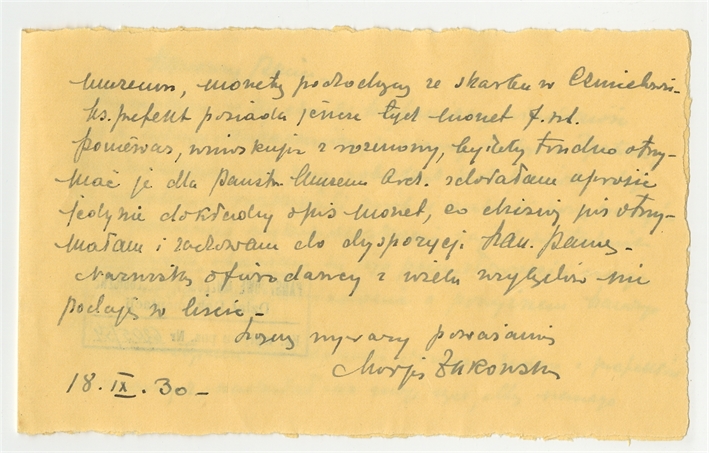 muzeum, monety pochodzą ze skarbu w
ks. prefekt posiada jeszcze tych monet
ponieważ, wnioskując z rozmowy, byłoby trudno otrzy-
mać je dla Państw. Muzeum Arch. zdołałam uprosić
jedynie dokładny opis monet, co dzisiaj już otrzy-
małam i zachowam do dyspozycji
Nazwiska ofiarodawcy z wielu względów nie
podaję w liście,-
Łączę wyrazy poważania
Żukowska
18. IX. 30 –